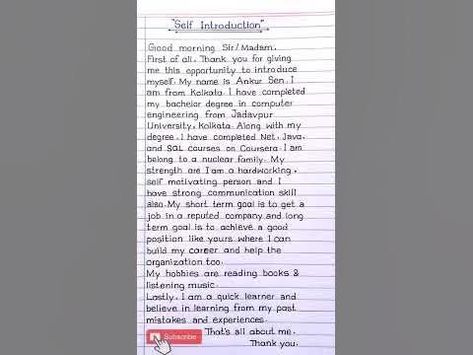 "Self Introduction"
Good morning Sir/Madam.
First of all, Thank you for giving
me this opportunity to introduce
myself. My name is Ankur Sen. I
am from Kolkata. I have completed
my bachelor degree in computer
engineering from Jadavpur
University, Kolkata. Along with my
degree, I have completed Net, Java,
and SQL courses on Coursera. I am
belong to a nuclear family. My
strength are I am a hardworking,
self motivating person and I
have strong communication skill
also. My short term goal is to get a
job in a reputed company and long
term goal is to achieve a good
position like yours where I can
build my career and help the
organization too.
My hobbies are reading books &
listening music.
Lastly, I am a quick learner and
believe in learning from my past
mistakes and experiences.
That's all about me.
Subscribe
Thank you.